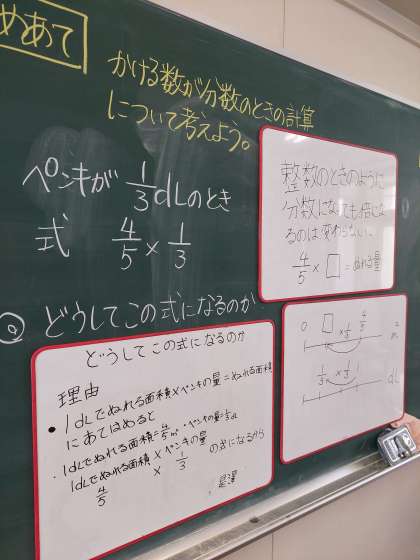 めあて
かける数が分数のときの計算
について考えよう。
ペンキが 1/3 dLのとき
式 4/5 × 1/3
Q どうしてこの式になるのか
整数のときのように
分数になっても倍にな
るのは変わらない、
4/5 × □ = ぬれる量
どうしてこの式になるのか
理由
• 1dLでぬれる面積×ペンキの量=ぬれる面積
にあてはめると
・1dLでぬれる面積=4/5㎡・ペンキの量=1/3dL
1dLでぬれる面積 × ペンキの量 の式になるから
4/5 × 1/3
0 □ 4/5 ㎡
×1/3
1/3 1 dL
×1/3